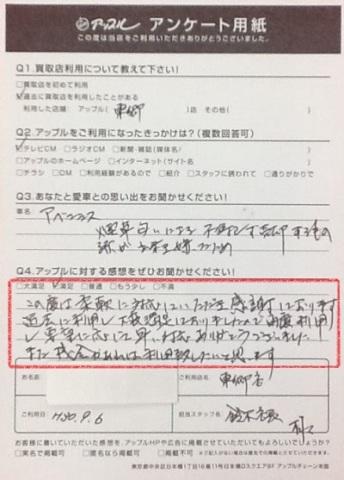 アップル アンケート用紙
この度は当店をご利用いただきありがとうございました。
Q1.買取店利用について教えて下さい!
□買取店を初めて利用
□過去に買取店を利用したことがある
利用した店舗: アップル( 東郷 )店 その他( )
Q2.アップルをご利用になったきっかけは?(複数回答可)
□テレビCM □ラジオCM □新聞・雑誌(媒体名/ )
□アップルのホームページ □インターネット(サイト名 )
□チラシ □DM □利用経験があるので □紹介 □スタッフに誘われて □通りがかりで
Q3.あなたと愛車との思い出をお聞かせください!
車名
アベンシス
Q4.アップルに対する感想をぜひお聞かせください!
□大満足 □満足 □普通 □もう少し □不満
この度は柔軟に対応していただき感謝しております
過去に利用し大変満足しておりましたので再度利用
し要望に応じて早い対応ありがとうございました
また機会があれば利用致したいと思います
お名前
ご利用店名
東郷店
ご利用日
H30.9.6
担当スタッフ名
鈴木
お客様に書いていただいた感想を、アップルHPや広告に掲載させていただいてもよろしいでしょうか?
□実名で掲載可 □匿名なら掲載可 □掲載不可
東京都中央区日本橋1丁目16番11号日本橋Dスクエア8F アップルチェーン本部